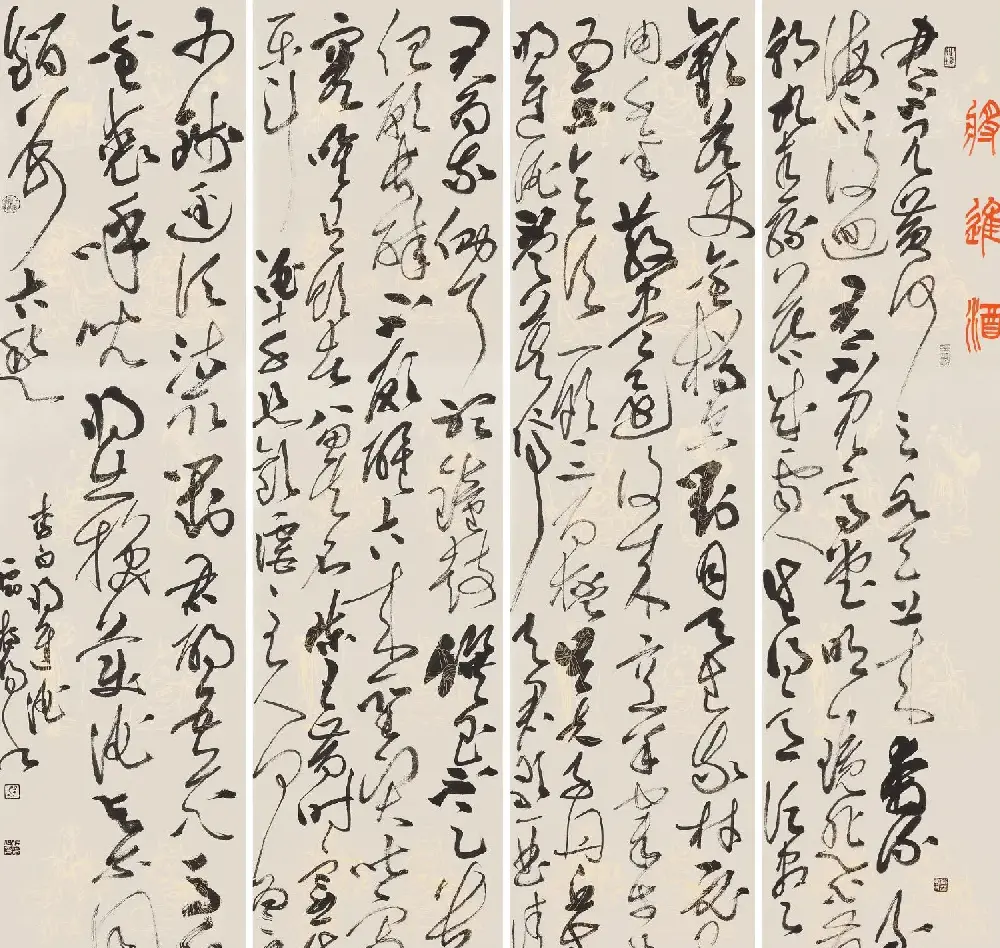 將進酒
君不見黃河之水天上來奔流到
海不復迴君不見高堂明鏡悲白
朝如青絲暮成雪人生得意須盡
歡莫使金樽空對月天生我材必
用千金散盡還復來烹羊宰牛且
為樂會須一飲三百杯岑夫子丹丘生
將進酒杯莫停與君歌一曲請
君為我側耳聽鐘鼓饌玉不足貴
但願長醉不願醒古來聖賢皆寂
寞唯有飲者留其名陳王昔時宴平
樂斗酒十千恣歡謔主人何為言
少錢徑須沽取對君酌五花馬千
金裘呼兒將出換美酒與爾同
銷萬古愁
李白將進酒